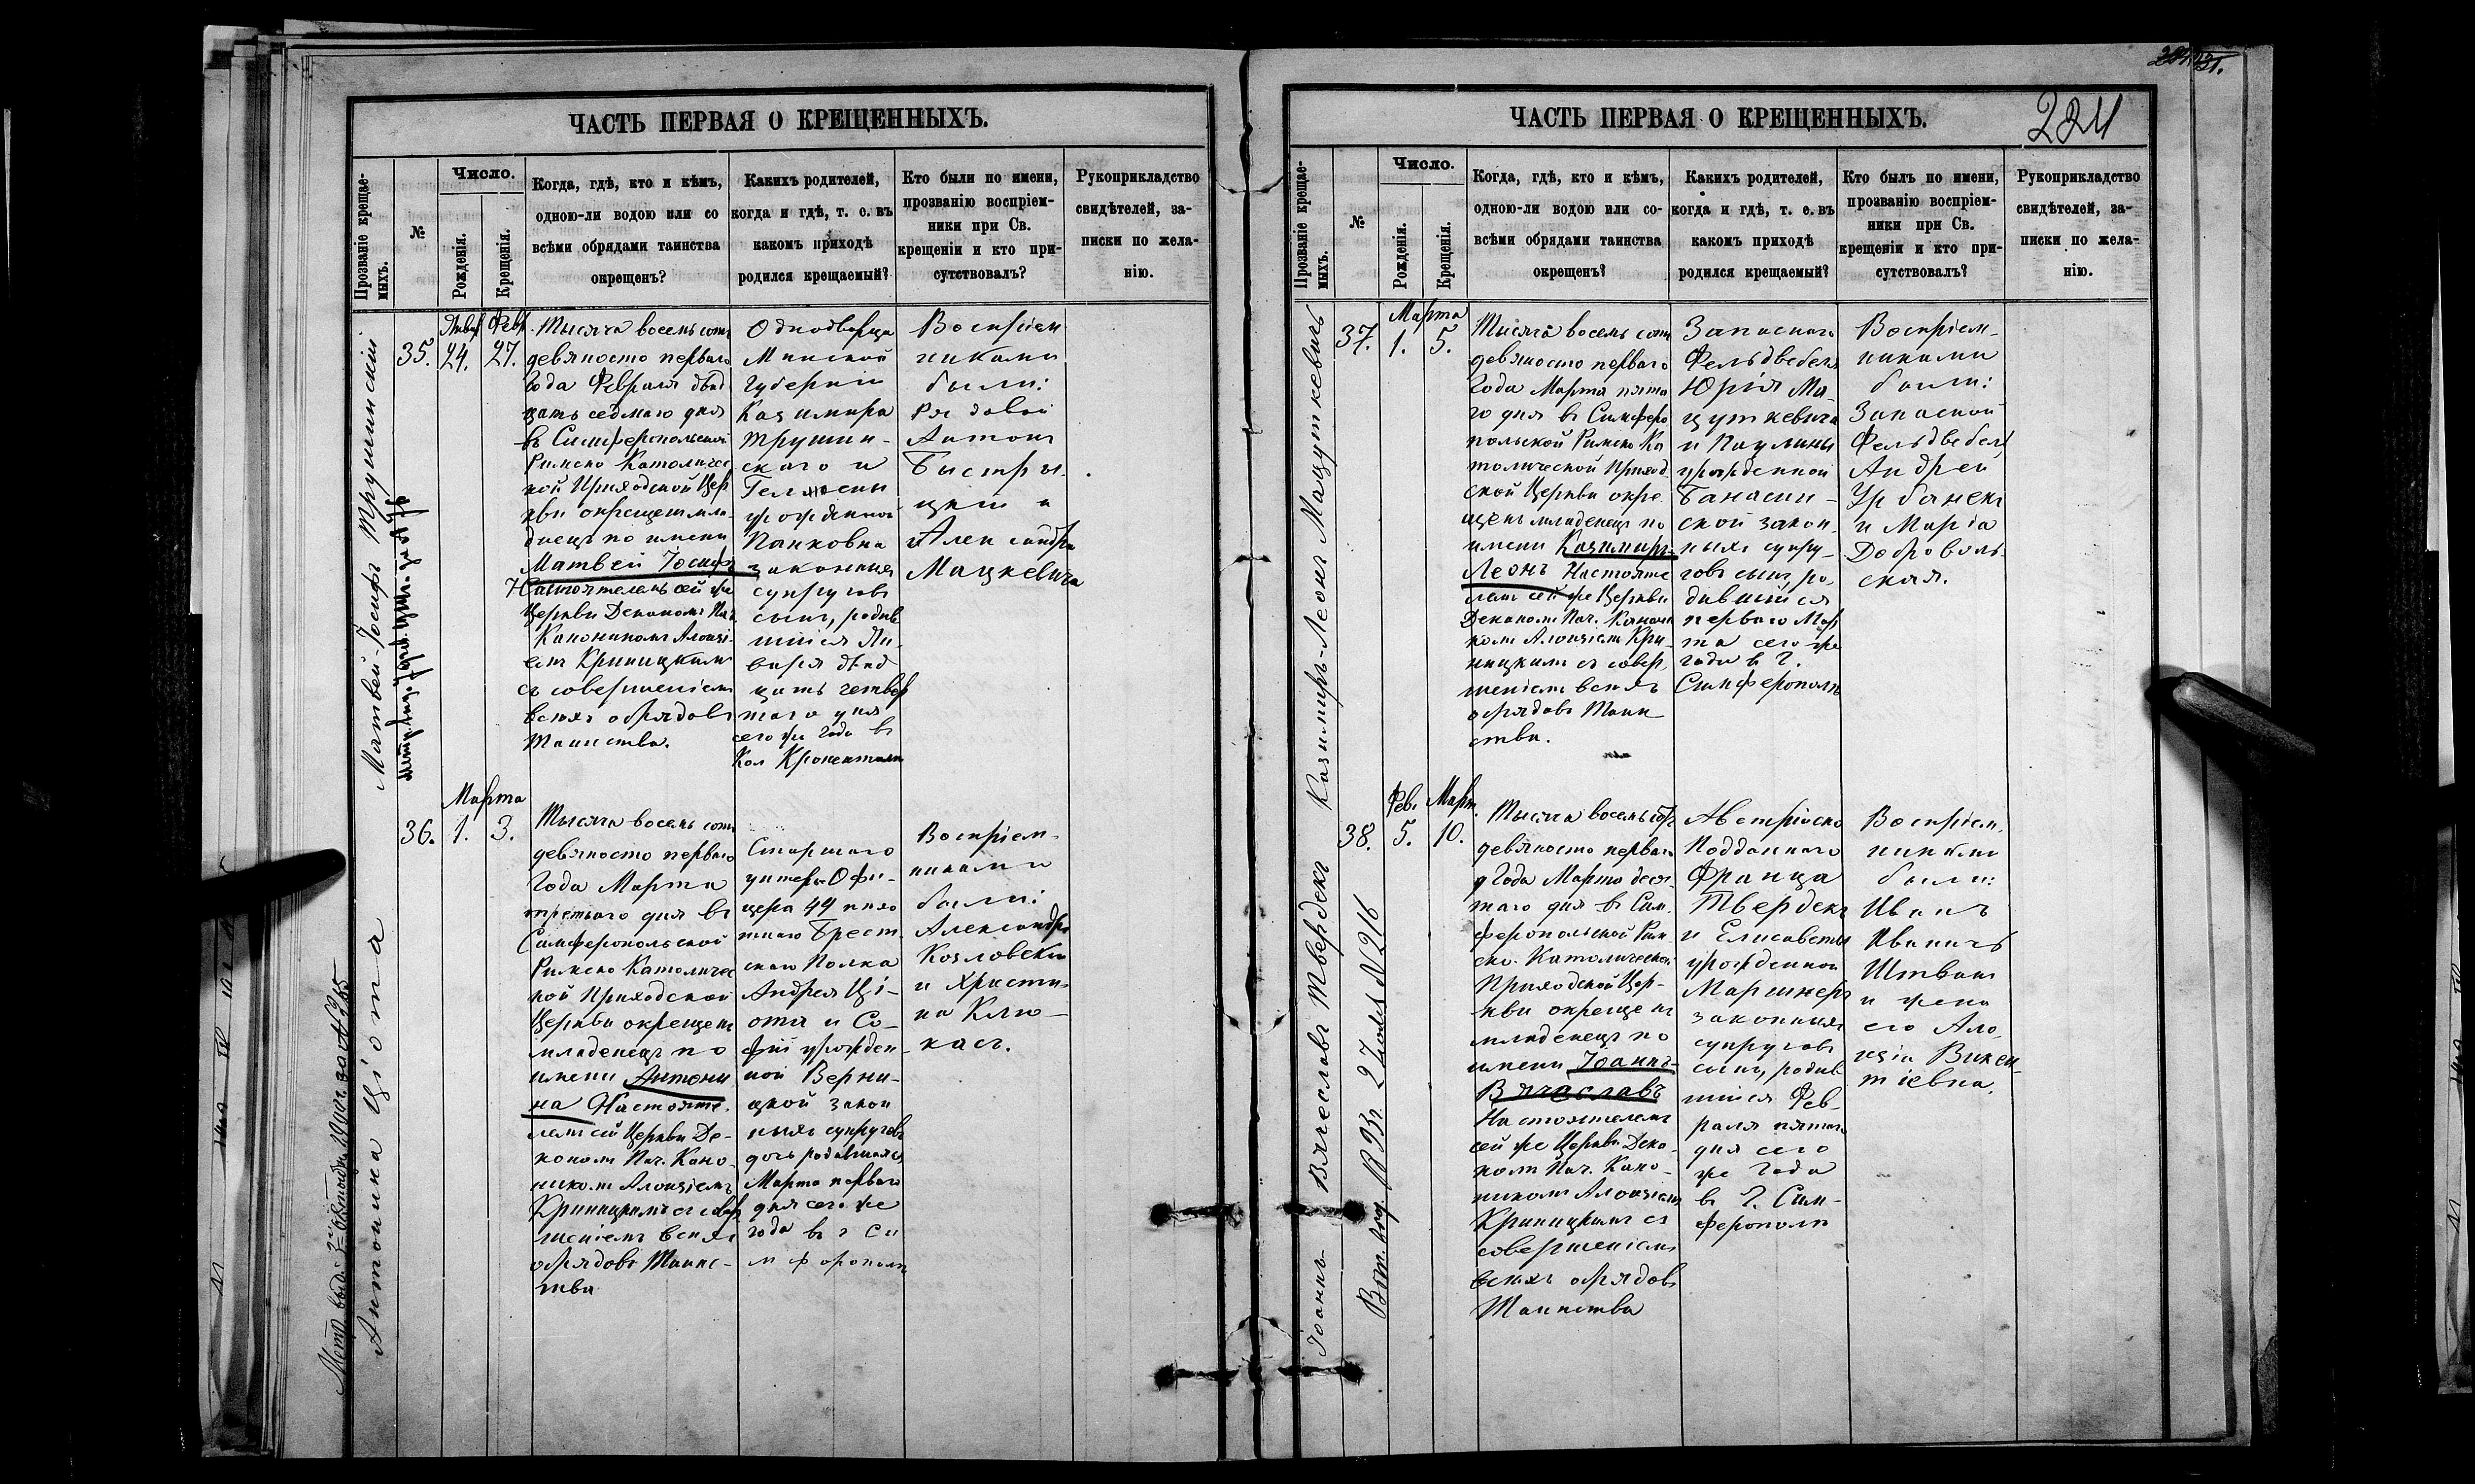 ЧАСТЬ ПЕРВАЯ О КРЕЩЕННЫХЪ.
Прозваніе крещае-
мыхъ.
№
Число.
Рожденія.
Крещенія.
Когда, гдѣ, кто и кѣмъ,
одною-ли водою или со
всѣми обрядами таинства
окрещенъ?
Какихъ родителей,
когда и гдѣ, т. е. въ
какомъ приходѣ
родился крещаемый?
Кто были по имени,
прозванію воспріем-
ники при Св.
крещеніи и кто при-
сутствовалъ?
Рукоприкладство
свидѣтелей, за-
писки по жела-
нію.
Матвей-Іосифъ Трушинскій
35.
Январ
24.
Февр.
27.
Тысяча восемь сотъ
девяносто перваго
года Февраля двад
цать седмаго дня
въ Симферопольской
Римско Католичес
кой Приходской Цер
кви окрещенъ мла-
денецъ по имени
Матвей Іосифъ
Настоятелемъ сей же
Церкви Деканомъ Поч.
Каноникомъ Алоизі-
емъ Криницкимъ
съ совершеніемъ
всѣхъ обрядовъ
Таинства.
Однодворца
Минской
губерніи
Казимира
Трушин-
скаго и
урожденной
Панковна
законныхъ
супруговъ
сынъ, родив
шійся Ян-
варя двад
цать четвер
таго дня
сего же года въ
Кол Кронентали
Воспріем
никами
были:
Рядовой
Антонъ
Быстри
цкій и
Александра
Мацкевича
36.
Марта
1.
3.
Антонина Ціота
Тысяча восемь сотъ
девяносто перваго
года Марта
третьяго дня въ
Симферопольской
Римско Католичес
кой Приходской
Церкви окрещенъ
младенецъ по
имени Антони
на Настояте-
лемъ сей Церкви Де-
каномъ Поч. Кано-
никомъ Алоизіемъ
Криницкимъ съ совер
шеніемъ всѣхъ
обрядовъ Таинс-
тва
Старшаго
унтеръ-Офи-
цера 49 пѣхо
тнаго Брест-
скаго Полка
Андрея Ці-
оты и Со-
фіи урожден-
ной Верни-
цкой закон
ныхъ супруговъ
дочь родившаяся
Марта перваго
дня сего же
года въ г Си
мферополѣ
Воспріем-
никами
были:
Александръ
Козловскій
и Христи-
на Клю-
касъ.
ЧАСТЬ ПЕРВАЯ О КРЕЩЕННЫХЪ.
224
Прозваніе крещае-
мыхъ.
№
Число.
Рожденія.
Крещенія.
Когда, гдѣ, кто и кѣмъ,
одною-ли водою или со-
всѣми обрядами таинства
окрещенъ?
Какихъ родителей,
когда и гдѣ, т. е. въ
какомъ приходѣ
родился крещаемый?
Кто былъ по имени,
прозванію воспріем-
ники при Св.
крещеніи и кто при-
сутствовалъ?
Рукоприкладство
свидѣтелей, за-
писки по жела-
нію.
Казимиръ-Леонъ Мацуткевичъ
37.
Марта
1.
5.
Тысяча восемь сотъ
девяносто перваго
года Марта пята
го дня въ Симферо
польской Римско Ка
толической Приход
ской Церкви окре-
щенъ младенецъ по
имени Казимиръ-
Леонъ Настояте
лемъ сей же Церкви
Деканомъ Поч. Канони
комъ Алоизіемъ Кри-
ницкимъ съ совер
шеніемъ всѣхъ
обрядовъ Таин
ства.
Запаснаго
Фельдвебеля
Юрія Ма-
цуткевича
и Паулины
урожденной
Банасин-
ской закон
ныхъ супру-
говъ сынъ, ро
дившійся
перваго Мар
та сего же
года въ г.
Симферополѣ
Воспріем-
никами
были:
Запасной
Фельдвебель
Андрей
Урбанекъ
и Марѳа
Доброволь-
ская.
Іоаннъ- Вячеславъ Твердекъ
Вып. 1893г. 2 Іюля N 216
38.
Фев.
5.
Март.
10.
Тысяча восемь сотъ
девяносто перваго
года Марта деся
таго дня въ Сим-
феропольской Рим-
ско. Католической
Приходской Цер-
кви окрещенъ
младенецъ по
имени Іоаннъ-
Вячеславъ
Настоятелемъ
сей же Церкви Дека-
номъ Поч. Кано-
никомъ Алоизіемъ
Криницкимъ съ
совершеніемъ
всѣхъ обрядовъ
Таинства
Австрійско
Подданнаго
Франца
Твердекъ
и Елисаветы
урожденной
Маршнеръ
законныхъ
супруговъ
сынъ, родив
шійся Фев-
раля пятаго
дня сего
же года
въ г. Сим-
ферополѣ
Воспріем.
никами
были:
Иванъ
Иваничъ
Штванъ
и жена
его Ало
изія Викен-
тіевна.